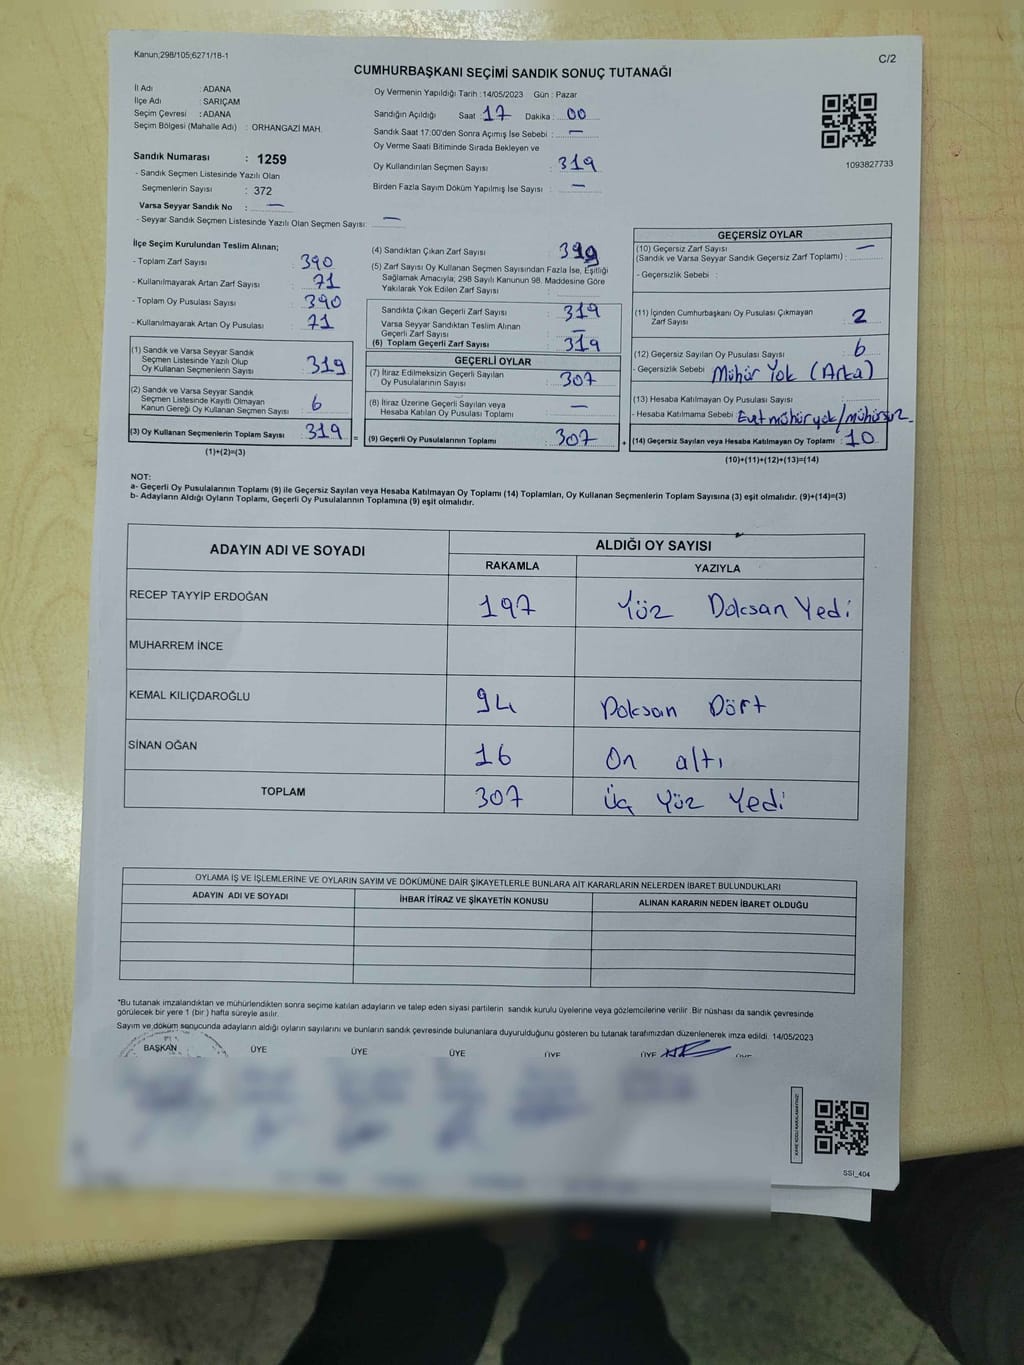 Kanun;298/105;6271/18-1
C/2
CUMHURBAŞKANI SEÇİMİ SANDIK SONUÇ TUTANAĞI
İl Adı : ADANA
İlçe Adı : SARIÇAM
Seçim Çevresi : ADANA
Seçim Bölgesi (Mahalle Adı) : ORHANGAZİ MAH.
Sandık Numarası : 1259
- Sandık Seçmen Listesinde Yazılı Olan
Seçmenlerin Sayısı : 372
Varsa Seyyar Sandık No : —
- Seyyar Sandık Seçmen Listesinde Yazılı Olan Seçmen Sayısı: —
Oy Vermenin Yapıldığı Tarih : 14/05/2023 Gün : Pazar
Sandığın Açıldığı Saat : 17 Dakika : 00
Sandık Saat 17:00'den Sonra Açımış İse Sebebi : —
Oy Verme Saati Bitiminde Sırada Bekleyen ve
Oy Kullandırılan Seçmen Sayısı : 319
Birden Fazla Sayım Döküm Yapılmış İse Sayısı : —
1093827733
İlçe Seçim Kurulundan Teslim Alınan;
- Toplam Zarf Sayısı : 390
- Kullanılmayarak Artan Zarf Sayısı : 71
- Toplam Oy Pusulası Sayısı : 390
- Kullanılmayarak Artan Oy Pusulası : 71
(1) Sandık ve Varsa Seyyar Sandık
Seçmen Listesinde Yazılı Olup
Oy Kullanan Seçmenlerin Sayısı : 319
(2) Sandık ve Varsa Seyyar Sandık
Seçmen Listesinde Kayıtlı Olmayan
Kanun Gereği Oy Kullanan Seçmen Sayısı : 6
(3) Oy Kullanan Seçmenlerin Toplam Sayısı : 319
(1)+(2)=(3)
(4) Sandıktan Çıkan Zarf Sayısı : 319
(5) Zarf Sayısı Oy Kullanan Seçmen Sayısından Fazla İse, Eşitliği
Sağlamak Amacıyla; 298 Sayılı Kanunun 98. Maddesine Göre
Yakılarak Yok Edilen Zarf Sayısı :
Sandıkta Çıkan Geçerli Zarf Sayısı : 319
Varsa Seyyar Sandıktan Teslim Alınan
Geçerli Zarf Sayısı : —
(6) Toplam Geçerli Zarf Sayısı : 319
GEÇERLİ OYLAR
(7) İtiraz Edilmeksizin Geçerli Sayılan
Oy Pusulalarının Sayısı : 307
(8) İtiraz Üzerine Geçerli Sayılan veya
Hesaba Katılan Oy Pusulası Toplamı : —
= (9) Geçerli Oy Pusulalarının Toplamı : 307
GEÇERSİZ OYLAR
(10) Geçersiz Zarf Sayısı
(Sandık ve Varsa Seyyar Sandık Geçersiz Zarf Toplamı) : —
- Geçersizlik Sebebi :
(11) İçinden Cumhurbaşkanı Oy Pusulası Çıkmayan
Zarf Sayısı : 2
(12) Geçersiz Sayılan Oy Pusulası Sayısı : 6
- Geçersizlik Sebebi : Mühür Yok (Arka)
(13) Hesaba Katılmayan Oy Pusulası Sayısı :
- Hesaba Katılmama Sebebi : Evet mühür yok/mühürsüz
+ (14) Geçersiz Sayılan veya Hesaba Katılmayan Oy Toplamı : 10
(10)+(11)+(12)+(13)=(14)
NOT:
a- Geçerli Oy Pusulalarının Toplamı (9) ile Geçersiz Sayılan veya Hesaba Katılmayan Oy Toplamı (14) Toplamları, Oy Kullanan Seçmenlerin Toplam Sayısına (3) eşit olmalıdır. (9)+(14)=(3)
b- Adayların Aldığı Oyların Toplamı, Geçerli Oy Pusulalarının Toplamına (9) eşit olmalıdır.
ADAYIN ADI VE SOYADI ALDIĞI OY SAYISI
RAKAMLA YAZIYLA
RECEP TAYYİP ERDOĞAN 197 Yüz Doksan Yedi
MUHARREM İNCE
KEMAL KILIÇDAROĞLU 94 Doksan Dört
SİNAN OĞAN 16 On altı
TOPLAM 307 Üç Yüz Yedi
OYLAMA İŞ VE İŞLEMLERİNE VE OYLARIN SAYIM VE DÖKÜMÜNE DAİR ŞİKAYETLERLE BUNLARA AİT KARARLARIN NELERDEN İBARET BULUNDUKLARI
ADAYIN ADI VE SOYADI İHBAR İTİRAZ VE ŞİKAYETİN KONUSU ALINAN KARARIN NEDEN İBARET OLDUĞU
*Bu tutanak imzalandıktan ve mühürlendikten sonra seçime katılan adayların ve talep eden siyasi partilerin sandık kurulu üyelerine veya gözlemcilerine verilir .Bir nüshası da sandık çevresinde
görülecek bir yere 1 (bir ) hafta süreyle asılır.
Sayım ve döküm sonucunda adayların aldığı oyların sayılarını ve bunların sandık çevresinde bulunanlara duyurulduğunu gösteren bu tutanak tarafımızdan düzenlenerek imza edildi. 14/05/2023
BAŞKAN ÜYE ÜYE ÜYE ÜYE ÜYE ÜYE
SSI_404